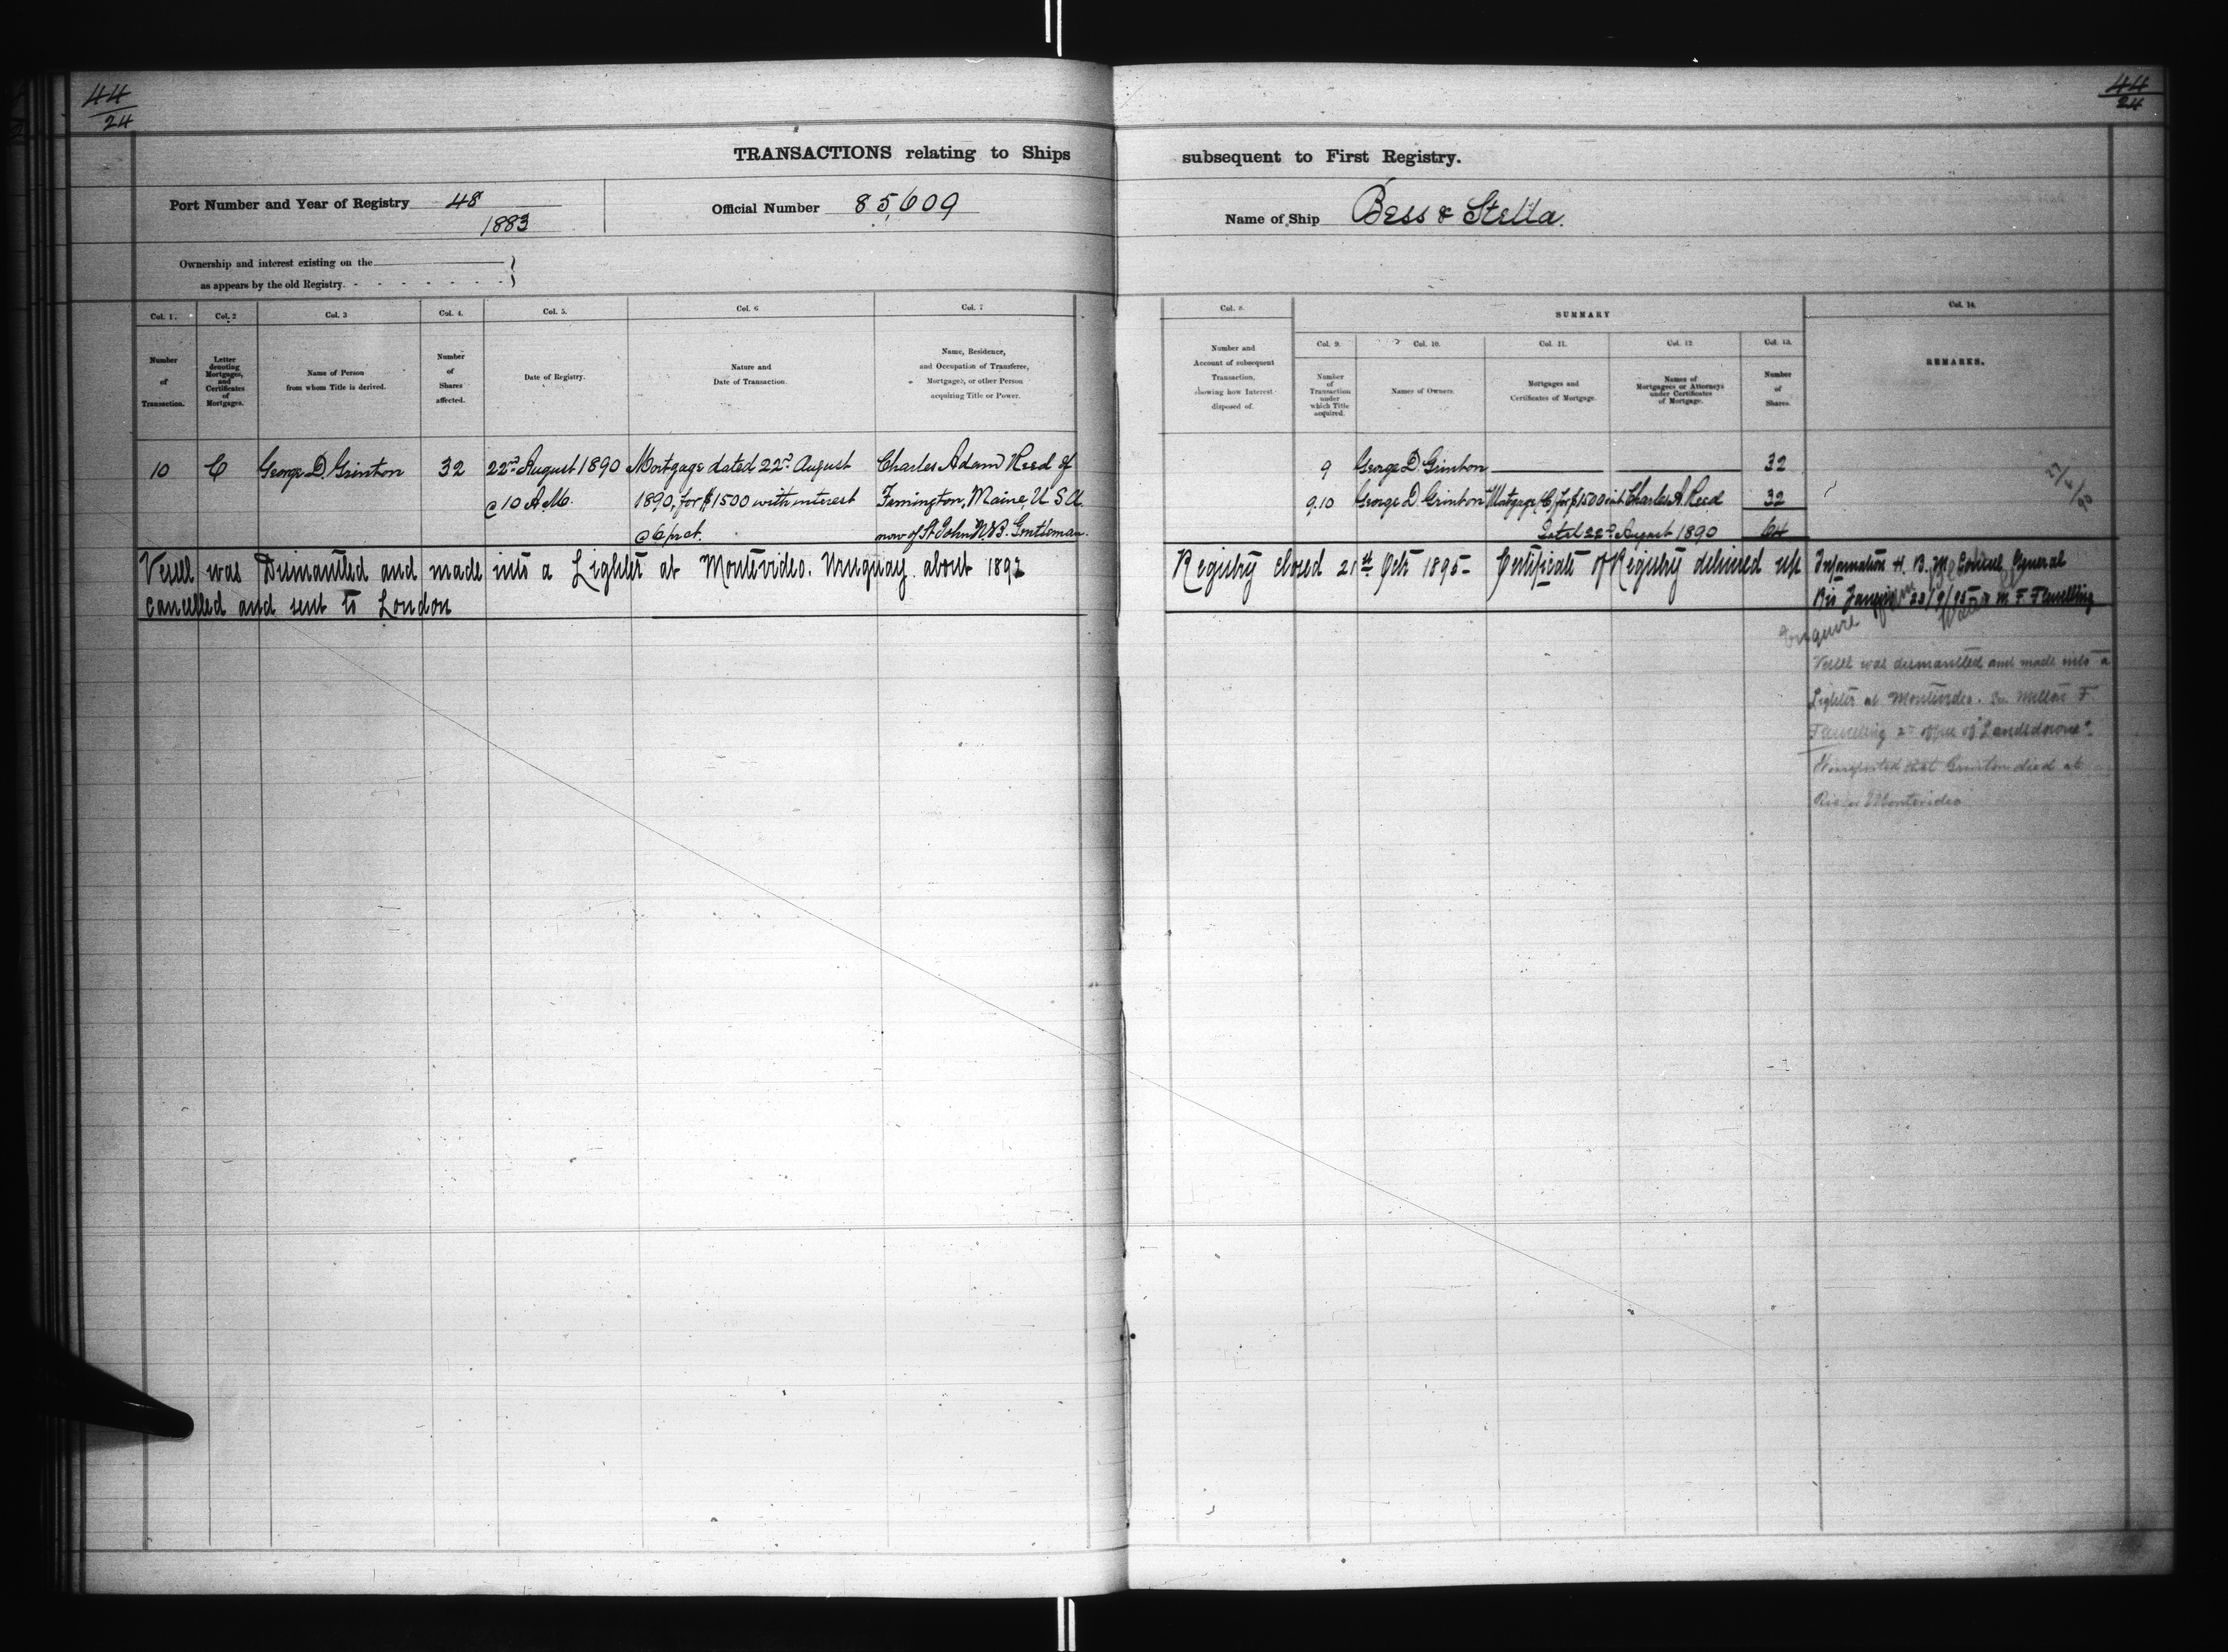 44
24
44
24
TRANSACTIONS relating to Ships subsequent to First Registry.
Port Number and Year of Registry 48
1883
Official Number 85,609
Name of Ship Bess & Stella.
Ownership and interest existing on the
as appears by the old Registry.
Col. 1.
Number
of
Transaction.
Col. 2
Letter
denoting
Mortgages,
and
Certificates
of
Mortgages.
Col. 3
Name of Person
from whom Title is derived.
Col. 4.
Number
of
Shares
affected.
Col. 5.
Date of Registry.
Col. 6
Nature and
Date of Transaction.
Col. 7
Name, Residence,
and Occupation of Transferee,
Mortgagee, or other Person
acquiring Title or Power.
Col. 8.
Number and
Account of subsequent
Transaction,
showing how Interest
disposed of.
SUMMARY
Col. 9.
Number
of
Transaction
under
which Title
acquired.
Col. 10.
Names of Owners.
Col. 11.
Mortgages and
Certificates of Mortgage.
Col. 12
Names of
Mortgagees or Attorneys
under Certificates
of Mortgage.
Col. 13.
Number
of
Shares.
Col. 14.
REMARKS.
10
C
George D. Grinton
32
22nd August 1890
@ 10 A.M.
Mortgage dated 22nd August
1890, for $1500 with interest
@ 6 pr ct.
Charles Adam Reed of
Farmington, Maine, U S A.
now of St John N.B. Gentleman.
9 George D. Grinton 32
9.10 George D. Grinton Mortgage C for $1500 int Charles A. Reed 32
Dated 22nd August 1890 64
Vessel was Dismantled and made into a Lighter at Montevideo. Uruguay. about 1892
Registry closed 21st Octr 1895- Certificate of Registry delivered up
cancelled and sent to London
Information H. B. M. Consul General
Rio 23/9/95 & M. F. Flewelling
Enquire
Vessel was dismantled and made into a
Lighter at Montevideo. F.
Flewelling 2nd officer of "Landsdowne".
that Grinton died at
Rio or Montevideo